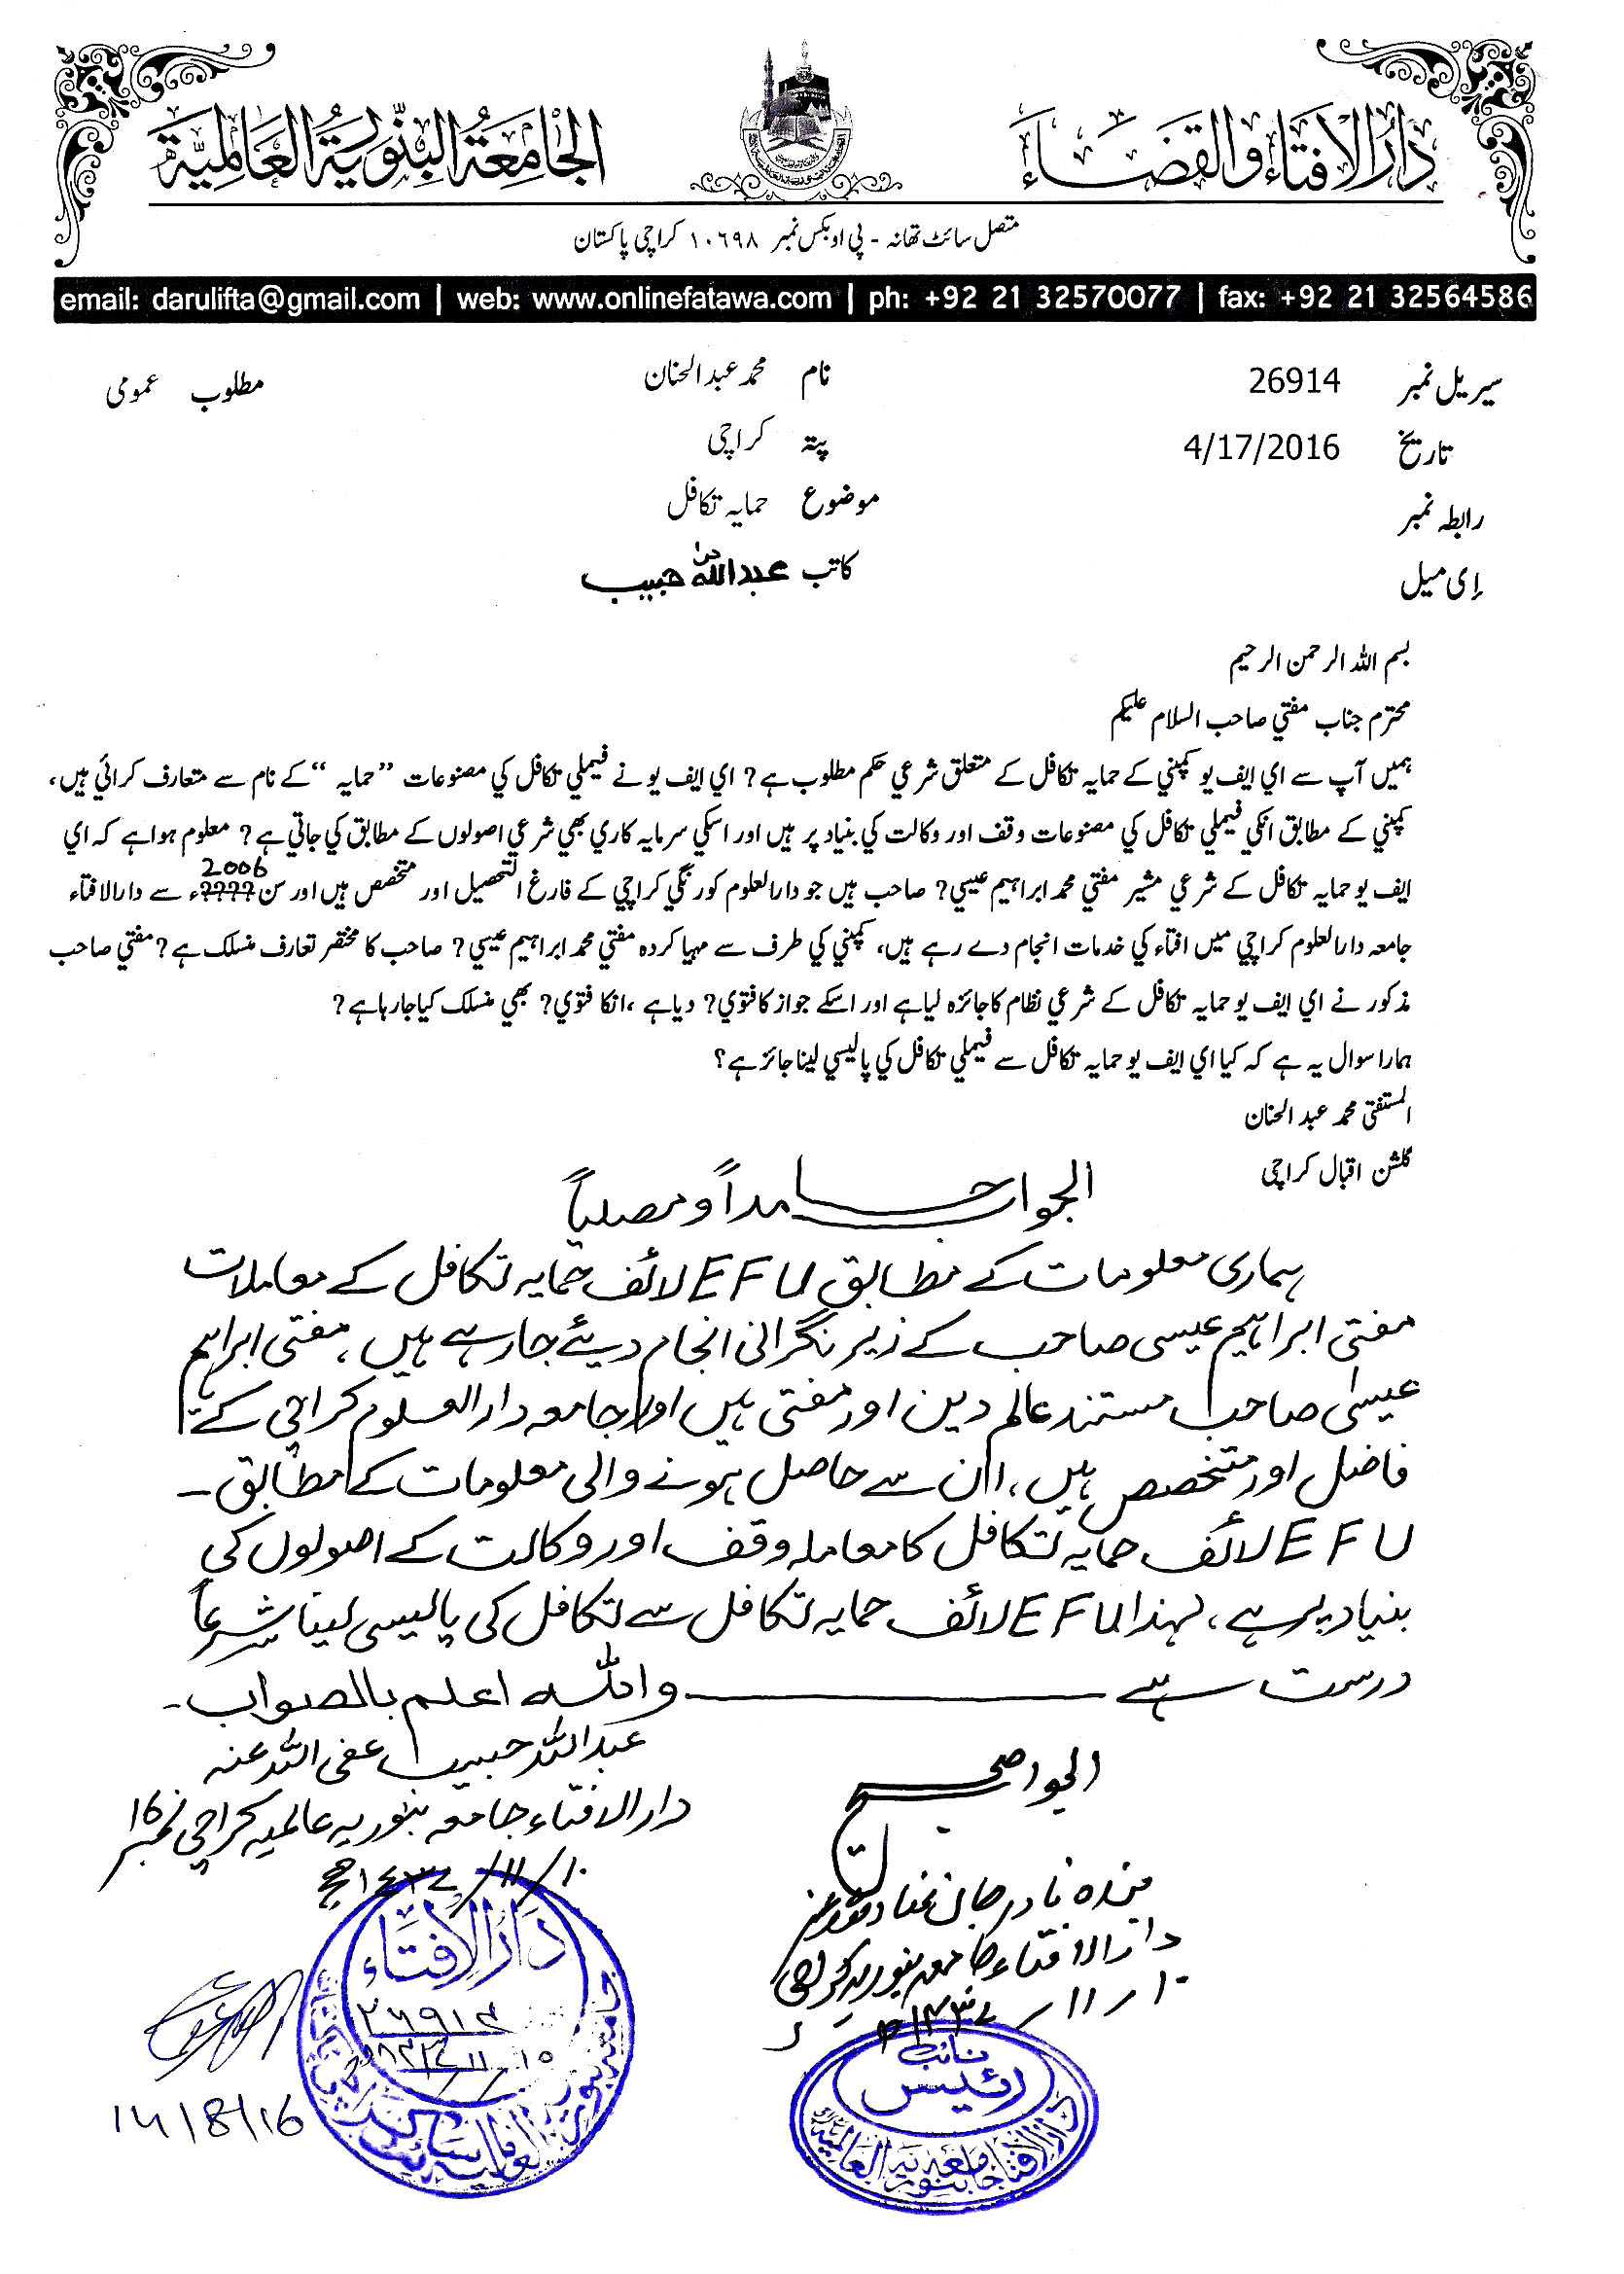 دار الافتاء والقضاء
الجامعة البنورية العالمية
متصل سائٹ تھانہ - پی او بکس نمبر ۱۰۶۹۸ کراچی پاکستان
email: darulifta@gmail.com | web: www.onlinefatawa.com | ph: +92 21 32570077 | fax: +92 21 32564586
سیریل نمبر 26914 نام محمد عبدالحنان مطلوب عمومی
تاریخ 4/17/2016 پتہ کراچی
رابطہ نمبر موضوع حمایہ تکافل
ای میل کاتب عبداللہ حبیب
بسم اللہ الرحمن الرحیم
محترم جناب مفتي صاحب السلام علیکم
ہمیں آپ سے اي ایف یو کمپني کے حمایہ تکافل کے متعلق شرعي حکم مطلوب ہے؟ اي ایف یو نے فیملي تکافل کي مصنوعات ”حمایہ “ کے نام سے متعارف کرائي ہیں،
کمپني کے مطابق انکي فیملي تکافل کي مصنوعات وقف اور وکالت کي بنیاد پر ہیں اور اسکي سرمایہ کاري بھي شرعي اصولوں کے مطابق کي جاتي ہے؟ معلوم ہوا ہے کہ اي
ایف یو حمایہ تکافل کے شرعي مشیر مفتي محمد ابراہیم عیسي? صاحب ہیں جو دارالعلوم کورنگي کراچي کے فارغ التحصیل اور متخصص ہیں اور سن 2006ء سے دارالافتاء
جامعہ دارالعلوم کراچي میں افتاء کي خدمات انجام دے رہے ہیں، کمپني کي طرف سے مہیا کردہ مفتي محمد ابراہیم عیسي? صاحب کا مختصر تعارف منسلک ہے? مفتي صاحب
مذکور نے اي ایف یو حمایہ تکافل کے شرعي نظام کا جائزہ لیا ہے اور اسکے جواز کا فتوي? دیا ہے ،انکا فتوي? بھي منسلک کیا جارہا ہے?
ہمارا سوال یہ ہے کہ کیا اي ایف یو حمایہ تکافل سے فیملي تکافل کي پالیسي لینا جائز ہے؟
المستفتی محمد عبد الحنان
گلشن اقبال کراچی
الجواب حامداً و مصلیاً
ہماری معلومات کے مطابق EFU لائف حمایہ تکافل کے معاملات
مفتی ابراہیم عیسی صاحب کے زیر نگرانی انجام دیئے جارہے ہیں، مفتی ابراہیم
عیسیٰ صاحب مستند عالم دین اور مفتی ہیں اور جامعہ دارالعلوم کراچی کے
فاضل اور متخصص ہیں، ان سے حاصل ہونے والی معلومات کے مطابق -
EFU لائف حمایہ تکافل کا معاملہ وقف اور وکالت کے اصولوں کی
بنیاد پر ہے، لہذا EFU لائف حمایہ تکافل سے تکافل کی پالیسی لینا شرعاً
درست ہے ـــــــ واللہ اعلم بالصواب -
عبد اللہ حبیب عفی اللہ عنہ
دارالافتاء جامعہ بنوریہ عالمیہ کراچی نمبر 16
۱۰/۱۱/۱۴۳۷ھ
الجواب صحیح
بندہ نادر جان
دارالافتاء جامعہ بنوریہ کراچی
۱۰/۱۱/۱۴۳۷
دار الافتاء
۲۶۹۱۴
14/8/16
نائب
رئیس
دار الافتاء جامعہ بنوریہ العالمیہ